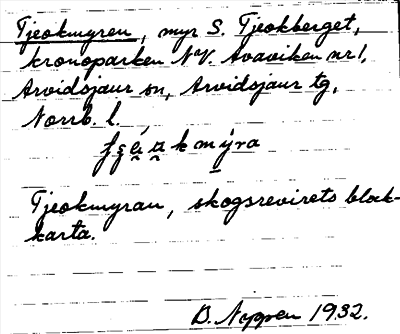 Tjeokmyren, myr S. Tjeokberget,
kronoparken NV. Avaviken nr 1,
Arvidsjaur sn, Arvidsjaur tg,
Norrb. l.
Tjeokmyran, skogsrevirets block-
karta.
B. Nygren 1932.